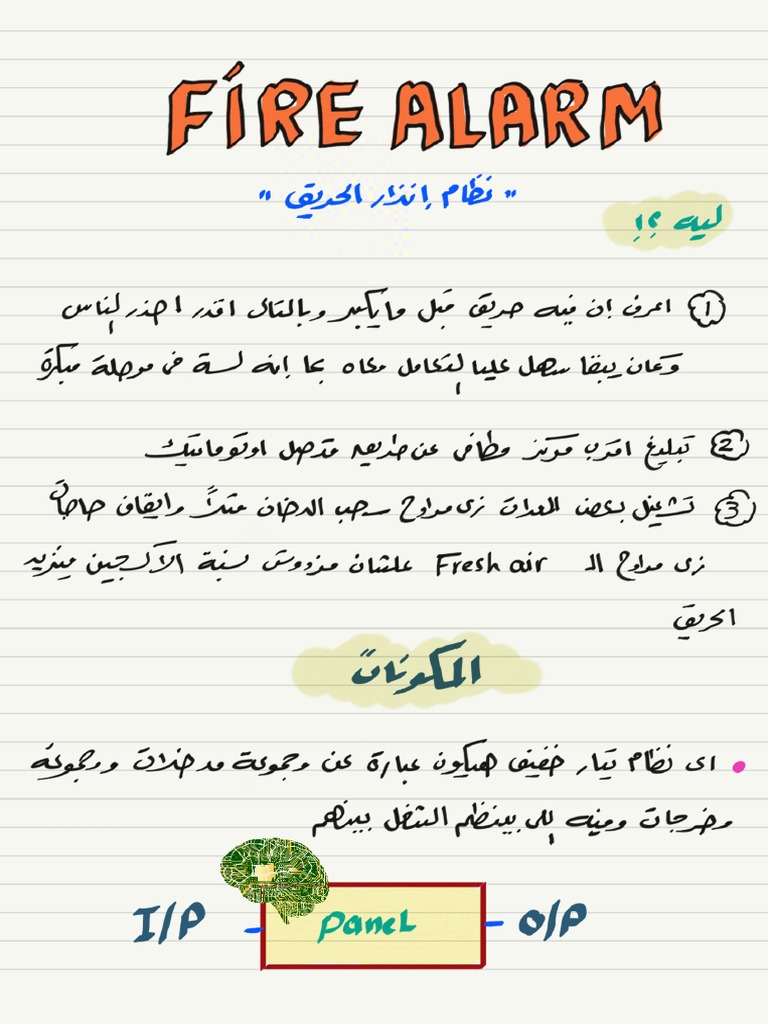 FIRE ALARM
" نظام إنذار الحريق "
ليه ؟!
① اعرف إن فيه حريق قبل مايكبر وبالتالى اقدر احذر الناس
وكمان يبقا سهل عليا التعامل معاه بما إنه لسة فى مرحلة مبكرة
② تبليغ اقرب مركز مطافى عن طريق متصل اوتوماتيك
③ تشغيل بعض المعدات زى مراوح سحب الدخان مثلاً وايقاف حاجات
زى مراوح الـ Fresh air علشان منزودش نسبة الآكسجين فيزيد
الحريق
المكونات
• اى نظام تيار خفيف هيكون عبارة عن مجموعة مدخلات ومجموعة
مخرجات وفيه اللى بينظم الشغل بينهم
I/P - Panel - O/P